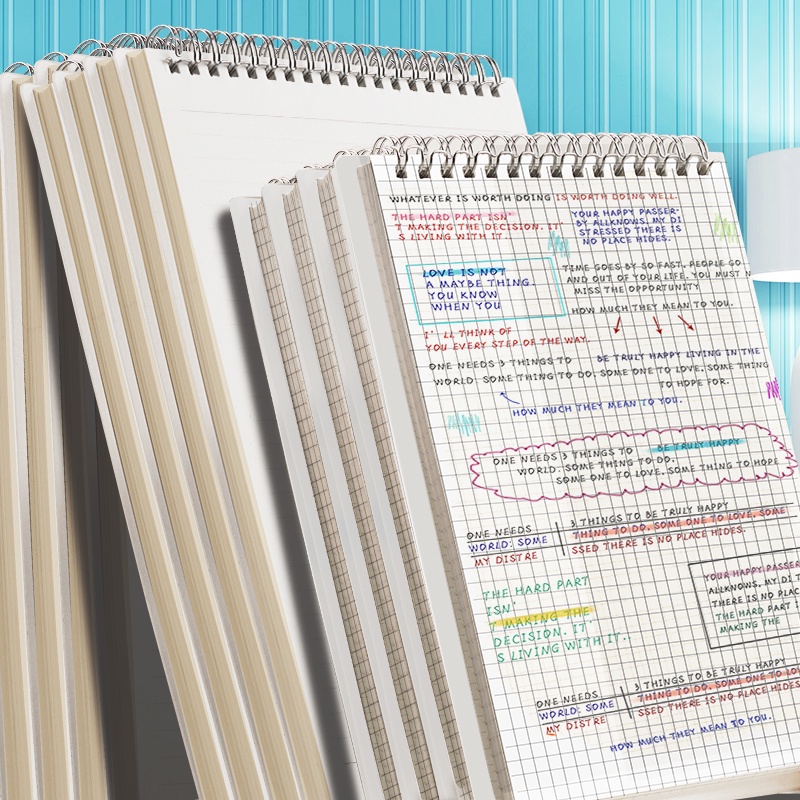 WHATEVER IS WORTH DOING IS WORTH DOING WELL.
THE HARD PART ISN'
T MAKING THE DECISION. IT'
S LIVING WITH IT.
YOUR HAPPY PASSER-
BY ALLKNOWS, MY DI
STRESSED THERE IS
NO PLACE HIDES.
LOVE IS NOT
A MAYBE THING.
YOU KNOW
WHEN YOU
TIME GOES BY SO FAST, PEOPLE GO
AND OUT OF YOUR LIFE. YOU MUST N
MISS THE OPPORTUNITY
HOW MUCH THEY MEAN TO YOU.
I'LL THINK OF
YOU EVERY STEP OF THE WAY.
ONE NEEDS 3 THINGS TO BE TRULY HAPPY LIVING IN THE
WORLD: SOME THING TO DO, SOME ONE TO LOVE, SOME THING
TO HOPE FOR.
HOW MUCH THEY MEAN TO YOU.
ONE NEEDS 3 THINGS TO BE TRULY HAPPY
WORLD: SOME THING TO DO,
SOME ONE TO LOVE, SOME THING TO HOPE
ONE NEEDS
WORLD: SOME
MY DISTRE
3 THINGS TO BE TRULY HAPPY
THING TO DO, SOME ONE TO LOVE, SOME
SSED THERE IS NO PLACE HIDES.
THE HARD PART
ISN'
T MAKING THE
DECISION. IT'
S LIVING WITH IT..
YOUR HAPPY PASSER
ALLKNOWS, MY DI T
THERE IS NO PLAC
THE HARD PART I
MAKING THE
ONE NEEDS
WORLD: SOME
MY DISTRE
3 THINGS TO BE TRULY HAPPY
THING TO DO, SOME ONE TO LO
SSED THERE IS NO PLACE HIDES
HOW MUCH THEY MEAN TO YOU.